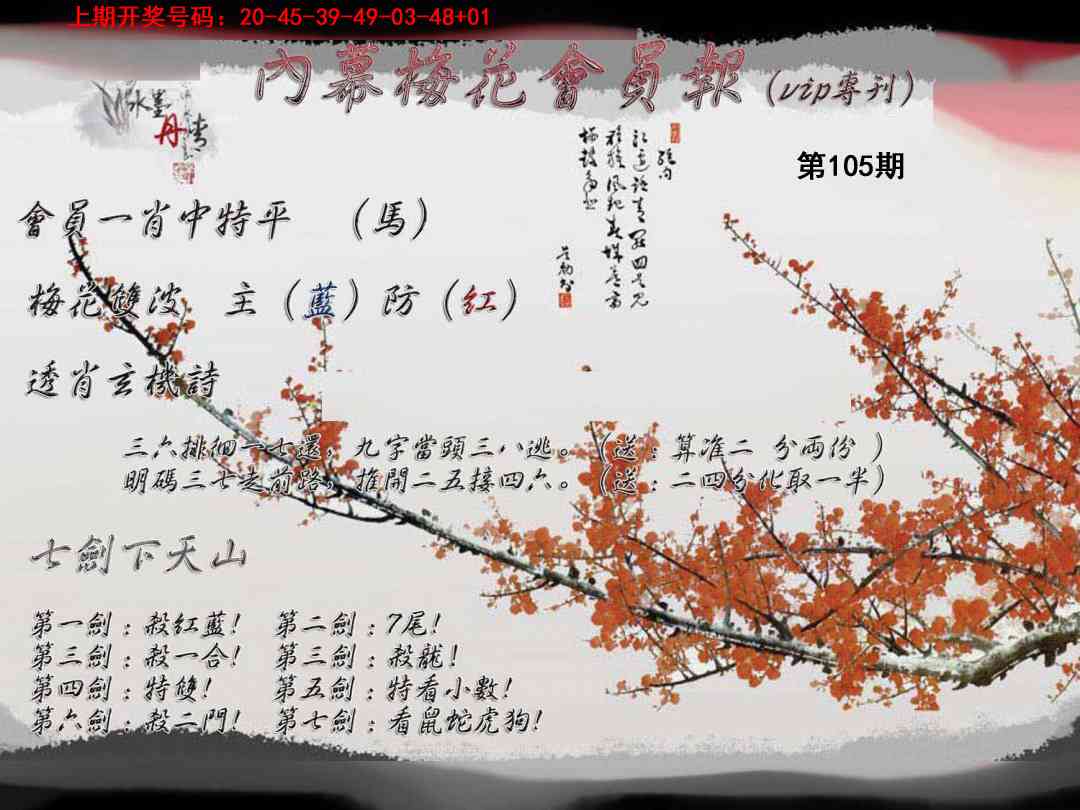 上期开奖号码：20-45-39-49-03-48+01
內幕梅花會員報（vip專刊）
水墨
丹青
第105期
會員一肖中特平 （馬）
梅花雙波 主（藍）防（紅）
透肖玄機詩
三六排徊一七還，九字當頭三八逃。（送：算准二 分両份 ）
明碼三七走前路，推開二五接四六。（送：二四分化取一半）
七劍下天山
第一劍：殺紅藍！ 第二劍：7尾！
第三劍：殺一合！ 第三劍：殺龍！
第四劍：特雙！ 第五劍：特看小數！
第六劍：殺二門！ 第七劍：看鼠蛇虎狗！